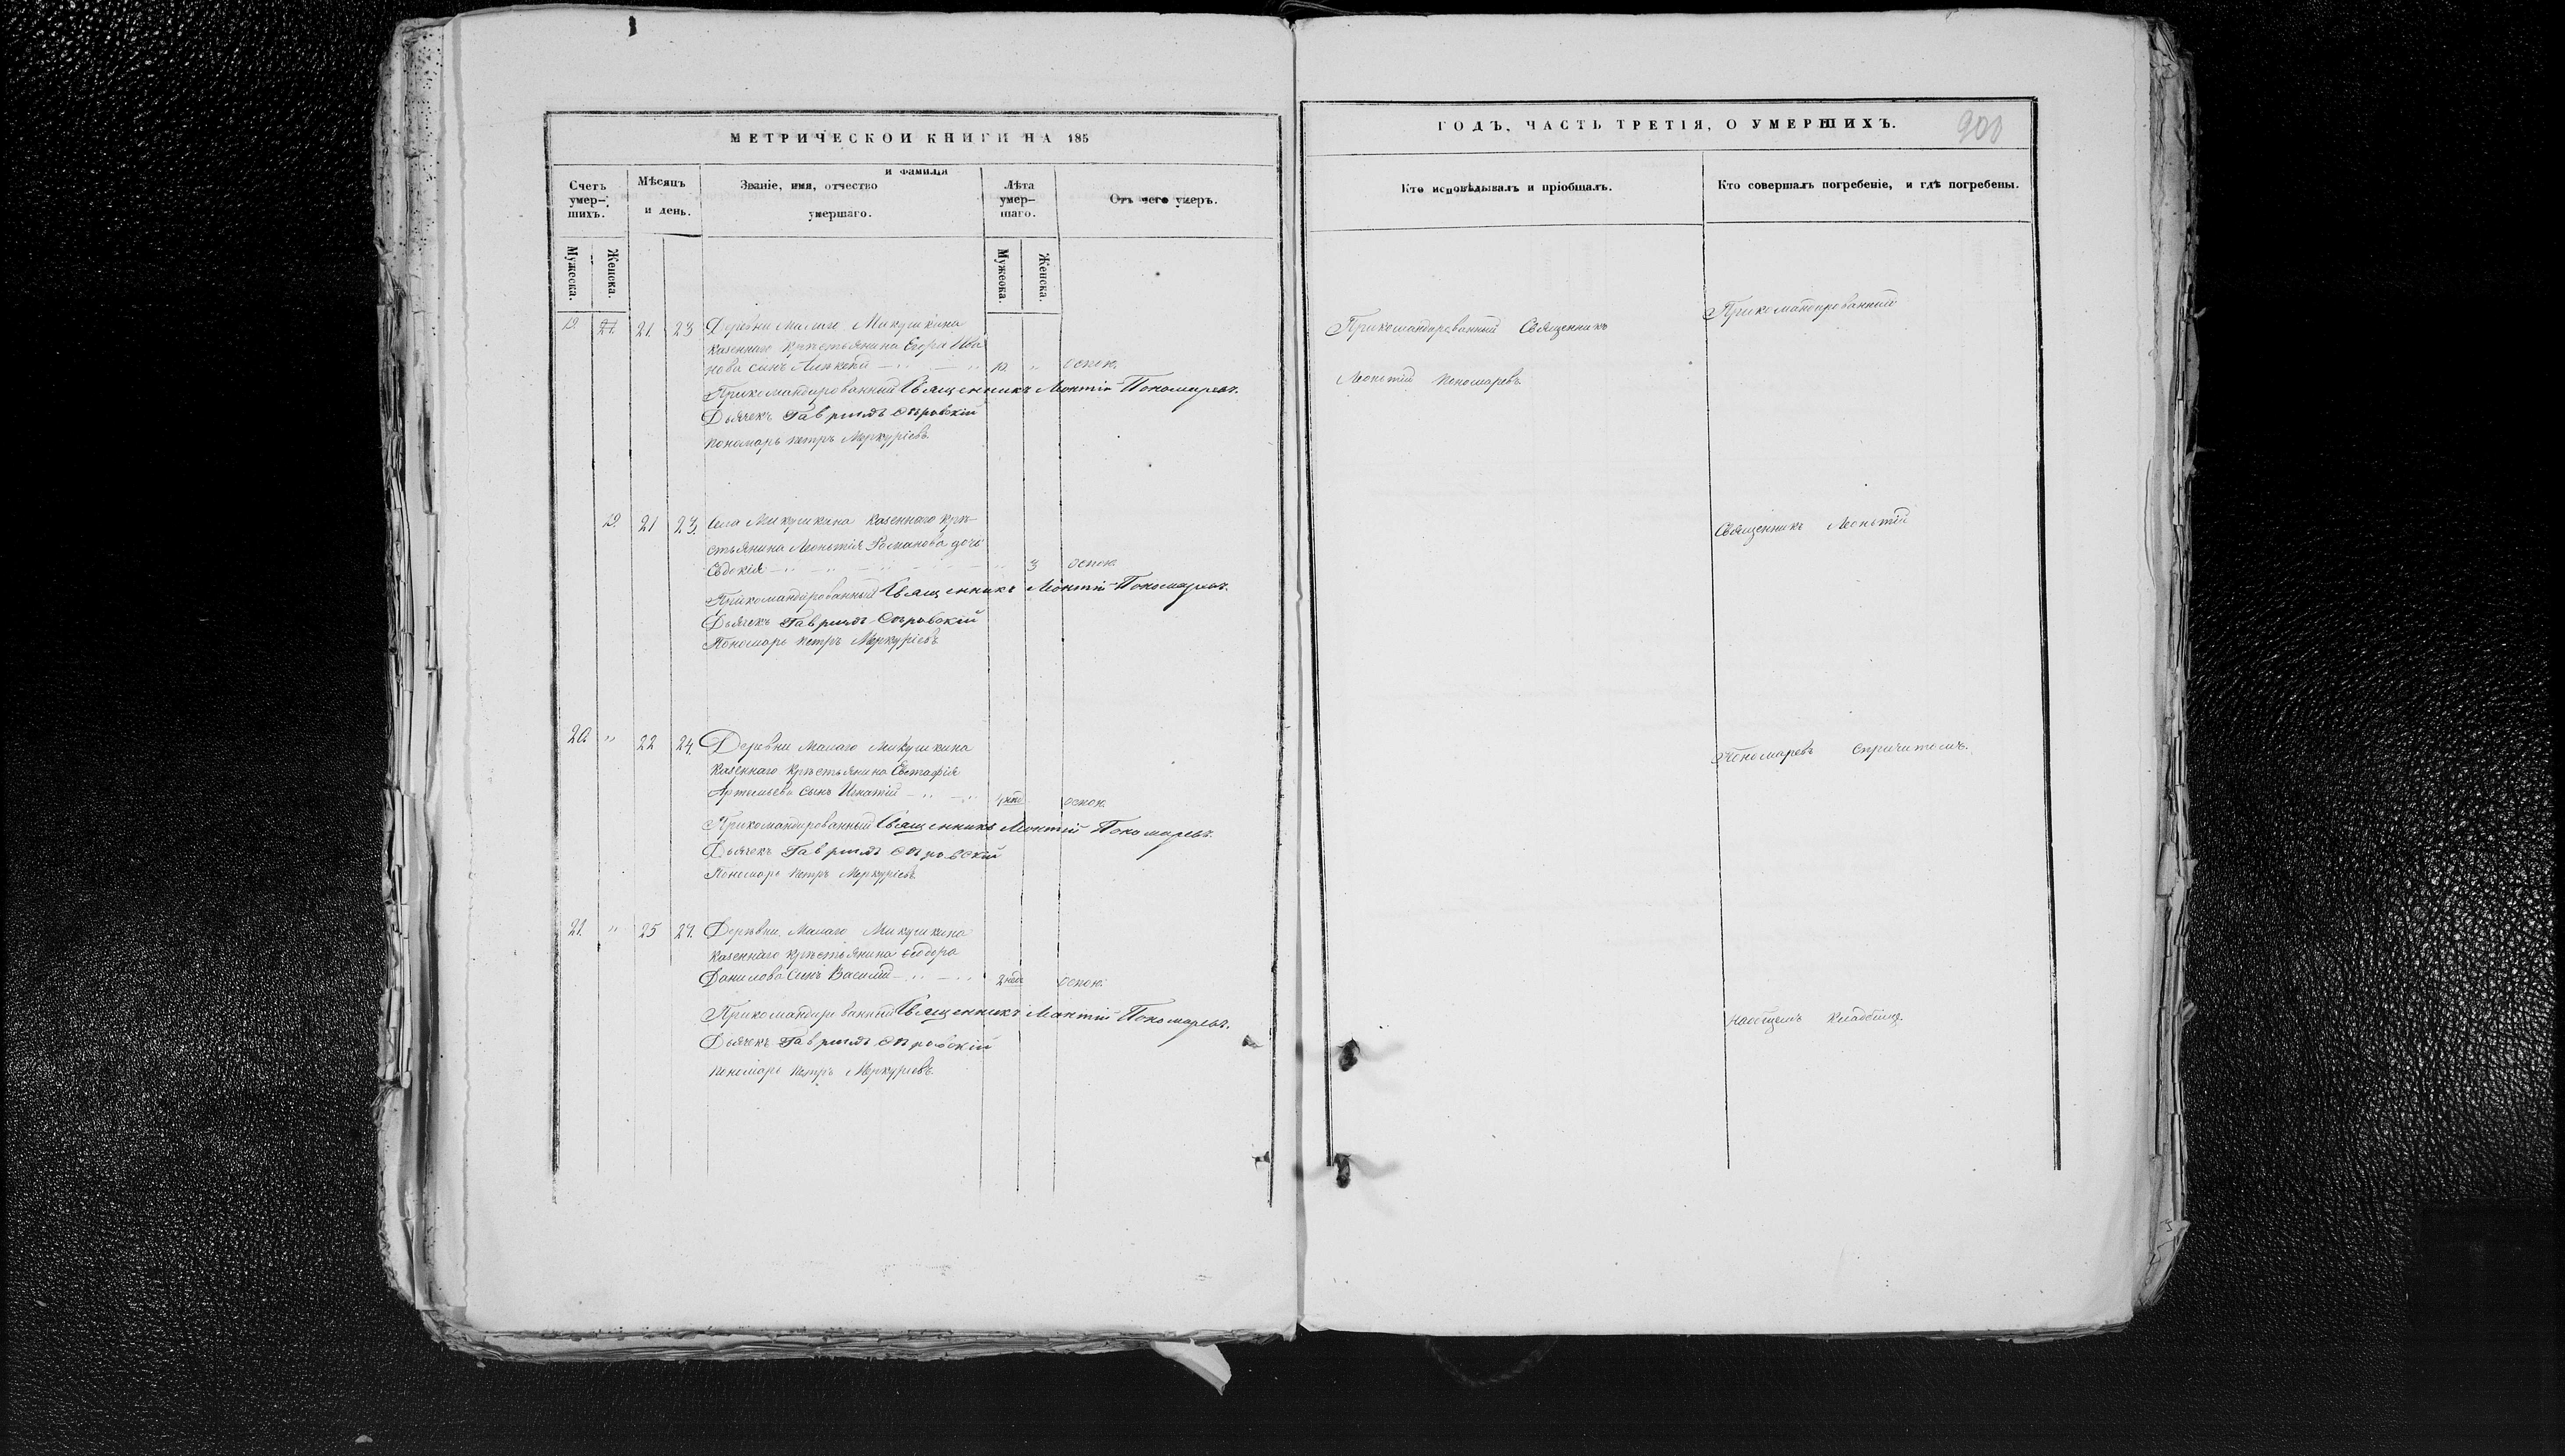 МЕТРИЧЕСКОЙ КНИГИ НА 185
Счетъ умер-шихъ.
Мѣсяцъ и день.
Званіе, имя, отчество и фамилія умершаго.
Лѣта умер-шаго.
Отъ чего умеръ.
Мужеска.
Женска.
Мужеска.
Женска.
19 21. 21. 23 Деревни Малаго Микушкина
казеннаго крестьянина Егора Ива
нова сынъ 12 " оспою.
Прикомандированный Священникъ Леонтій Пономаревъ.
Дьячекъ Гавріилъ
Пономарь Петръ Меркуріевъ
19 21 23. Села Микушкина казеннаго кре-
стьянина Леонтія Романова дочь
Евдокія 3 оспою.
Прикомандированный Священникъ Леонтій Пономаревъ.
Дьячекъ Гавріилъ
Пономарь Петръ Меркуріевъ
20 " 22 24. Деревни Малаго Микушкина
казеннаго крестьянина Евстафія
Артемьева сынъ Игнатій оспою.
Прикомандированный Священникъ Леонтій Пономаревъ.
Дьячекъ Гавріилъ
Пономарь Петръ Меркуріевъ
21. " 25 27. Деревни Малаго Микушкина
казеннаго крестьянина Ѳеодора
Данилова сынъ Василій 2 нед. оспою.
Прикомандированный Священникъ Леонтій Пономаревъ.
Дьячекъ Гавріилъ
Пономарь Петръ Меркуріевъ
ГОДЪ, ЧАСТЬ ТРЕТІЯ, О УМЕРШИХЪ.
900
Кто исповѣдывалъ и пріобщалъ.
Кто совершалъ погребеніе, и гдѣ погребены.
Прикомандированный Священникъ
Леонтій Пономаревъ
Прикомандированный
Священникъ Леонтій
Пономаревъ спричитомъ.
Наобщемъ кладбище.